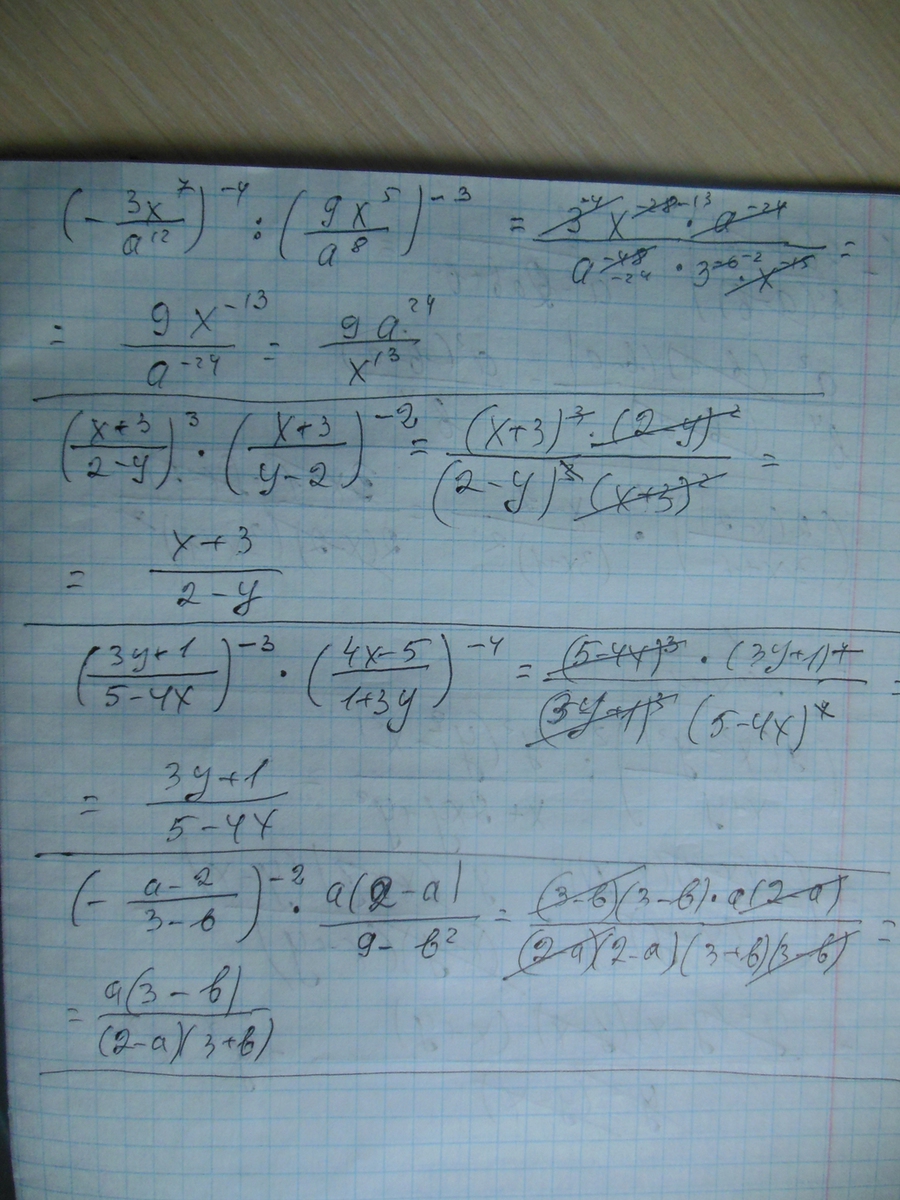 (- 3x^7/a^12)^-4 : (9x^5/a^8)^-3 = 3^-4 x^-28 -13 · a^-24 / a^-48 -24 · 3^-6 -2 · x^-15 =
= 9x^-13/a^-24 = 9a^24/x^13
((x+3)/(2-y))^3 · ((x+3)/(y-2))^-2 = (x+3)^3 · (2-y)^2 / (2-y)^3 (x+3)^2 =
= (x+3)/(2-y)
((3y+1)/(5-4x))^-3 · ((4x-5)/(1+3y))^-4 = (5-4x)^3 · (3y+1)^4 / (3y+1)^3 (5-4x)^4 =
= (3y+1)/(5-4x)
(- (a-2)/(3-b))^-2 · a(2-a)/(9-b^2) = (3-b)(3-b) · a(2-a) / (2-a)(2-a)(3+b)(3-b) =
= a(3-b)/((2-a)(3+b))